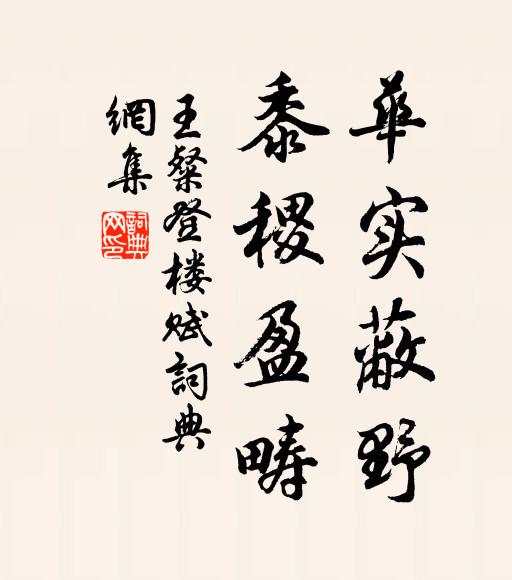 華实蔽野
黍稷盈畴
王粲登楼赋詞典
網集
詞典网印